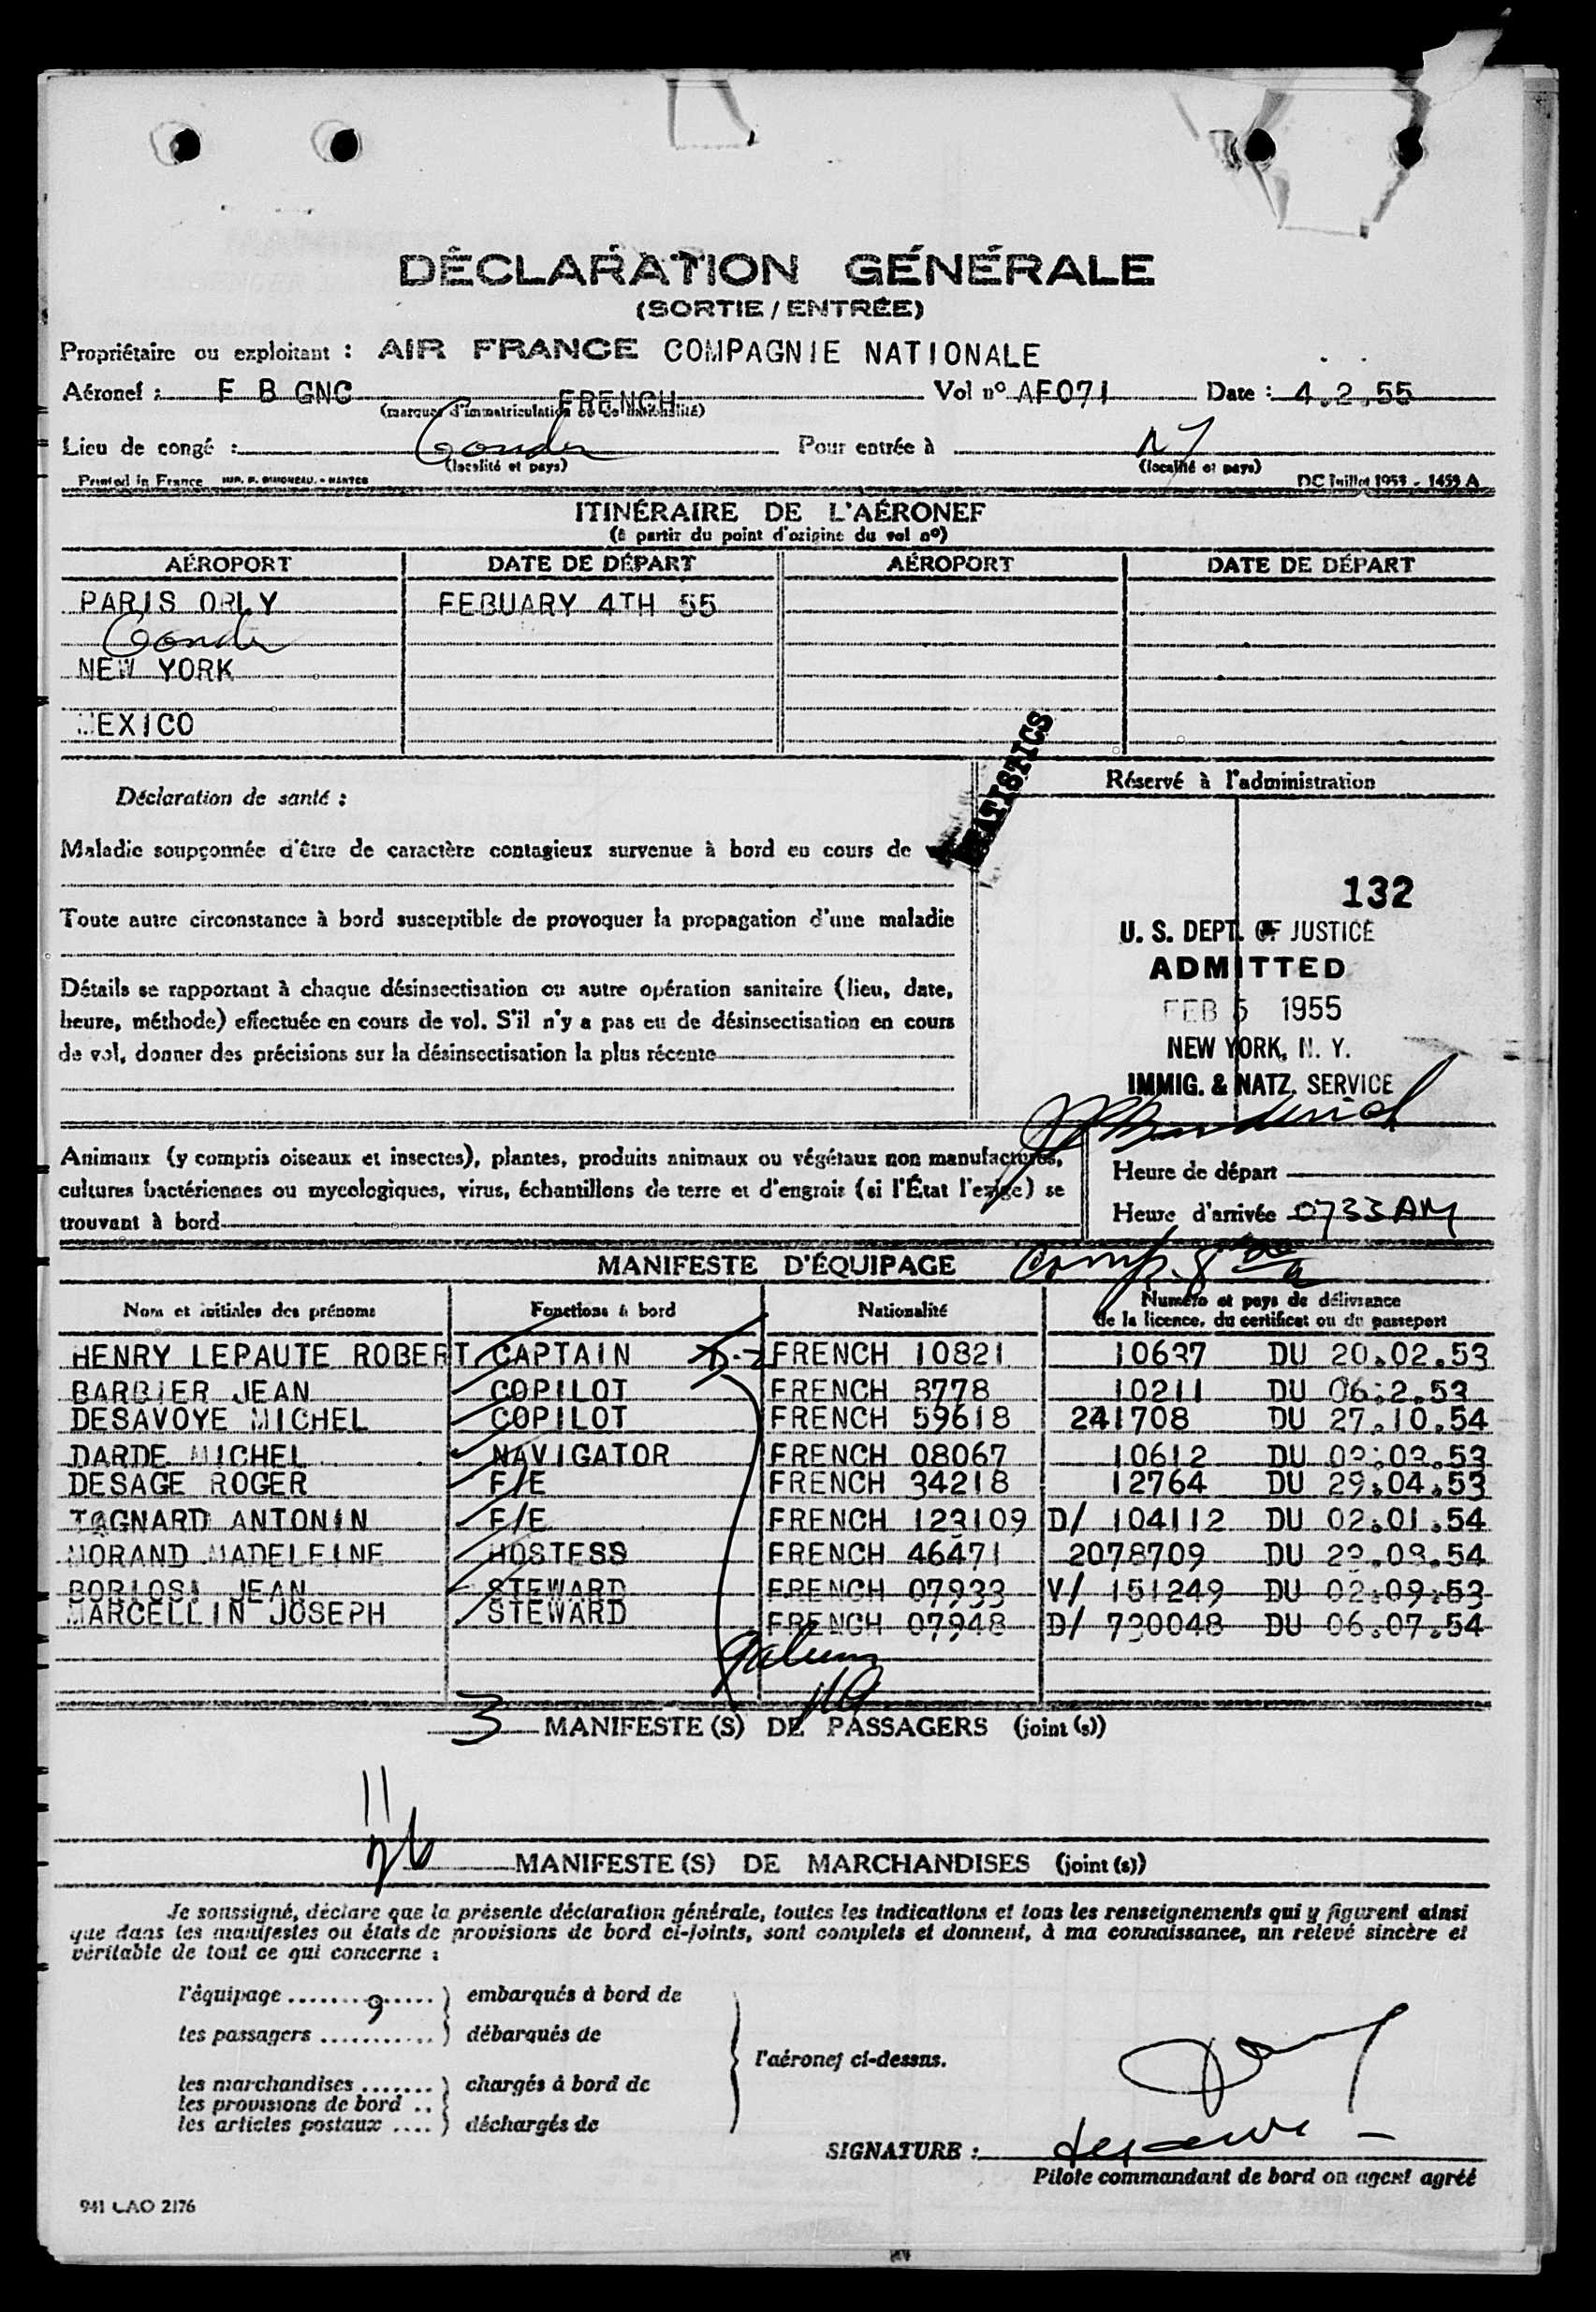 DÉCLARATION GÉNÉRALE
(SORTIE / ENTRÉE)
Propriétaire ou exploitant : AIR FRANCE COMPAGNIE NATIONALE
Aéronef : F B GNC FRENCH Vol nº AF071 Date : 4.2.55
(marques d'immatriculation et de nationalité)
Lieu de congé : Gander Pour entrée à NY
(localité et pays) (localité et pays)
Printed in France DC Juillet 1953 - 1459 A
ITINÉRAIRE DE L'AÉRONEF
(à partir du point d'origine du vol nº)
AÉROPORT DATE DE DÉPART AÉROPORT DATE DE DÉPART
PARIS ORLY FEBUARY 4TH 55
Gander
NEW YORK
MEXICO
STATISTICS
Déclaration de santé :
Réservé à l'administration
Maladie soupçonnée d'être de caractère contagieux survenue à bord en cours de
Toute autre circonstance à bord susceptible de provoquer la propagation d'une maladie
Détails se rapportant à chaque désinsectisation ou autre opération sanitaire (lieu, date,
heure, méthode) effectuée en cours de vol. S'il n'y a pas eu de désinsectisation en cours
de vol, donner des précisions sur la désinsectisation la plus récente
132
U. S. DEPT. OF JUSTICE
ADMITTED
FEB 5 1955
NEW YORK, N. Y.
IMMIG. & NATZ. SERVICE
Animaux (y compris oiseaux et insectes), plantes, produits animaux ou végétaux non manufacturés,
cultures bactériennes ou mycologiques, virus, échantillons de terre et d'engrais (si l'État l'exige) se
trouvant à bord
Heure de départ
Heure d'arrivée 0733 AM
MANIFESTE D'ÉQUIPAGE
Nom et initiales des prénoms Fonctions à bord Nationalité Numéro et pays de délivrance
de la licence, du certificat ou du passeport
HENRY LEPAUTE ROBERT CAPTAIN FRENCH 10821 10637 DU 20.02.53
BARBIER JEAN COPILOT FRENCH 8778 10211 DU 06.2.53
DESAVOYE MICHEL COPILOT FRENCH 59618 241708 DU 27.10.54
DARDE MICHEL NAVIGATOR FRENCH 08067 10612 DU 03.03.53
DESAGE ROGER F/E FRENCH 34218 12764 DU 29.04.53
TAGNARD ANTONIN F/E FRENCH 123109 D/ 104112 DU 02.01.54
MORAND MADELEINE HOSTESS FRENCH 46471 2078709 DU 23.03.54
BORLOSA JEAN STEWARD FRENCH 07933 V/ 151249 DU 02.09.53
MARCELLIN JOSEPH STEWARD FRENCH 07948 D/ 730048 DU 06.07.54
3 MANIFESTE (S) DE PASSAGERS (joint (s))
11
MANIFESTE (S) DE MARCHANDISES (joint (s))
Je soussigné, déclare que la présente déclaration générale, toutes les indications et tous les renseignements qui y figurent ainsi
que dans les manifestes ou états de provisions de bord ci-joints, sont complets et donnent, à ma connaissance, un relevé sincère et
véritable de tout ce qui concerne :
l'équipage ........9...... ) embarqués à bord de
les passagers ........... ) débarqués de
l'aéronef ci-dessus.
les marchandises ....... ) chargés à bord de
les provisions de bord ..
les articles postaux .... ) déchargés de
SIGNATURE :
Pilote commandant de bord ou agent agréé
941 CAO 2176